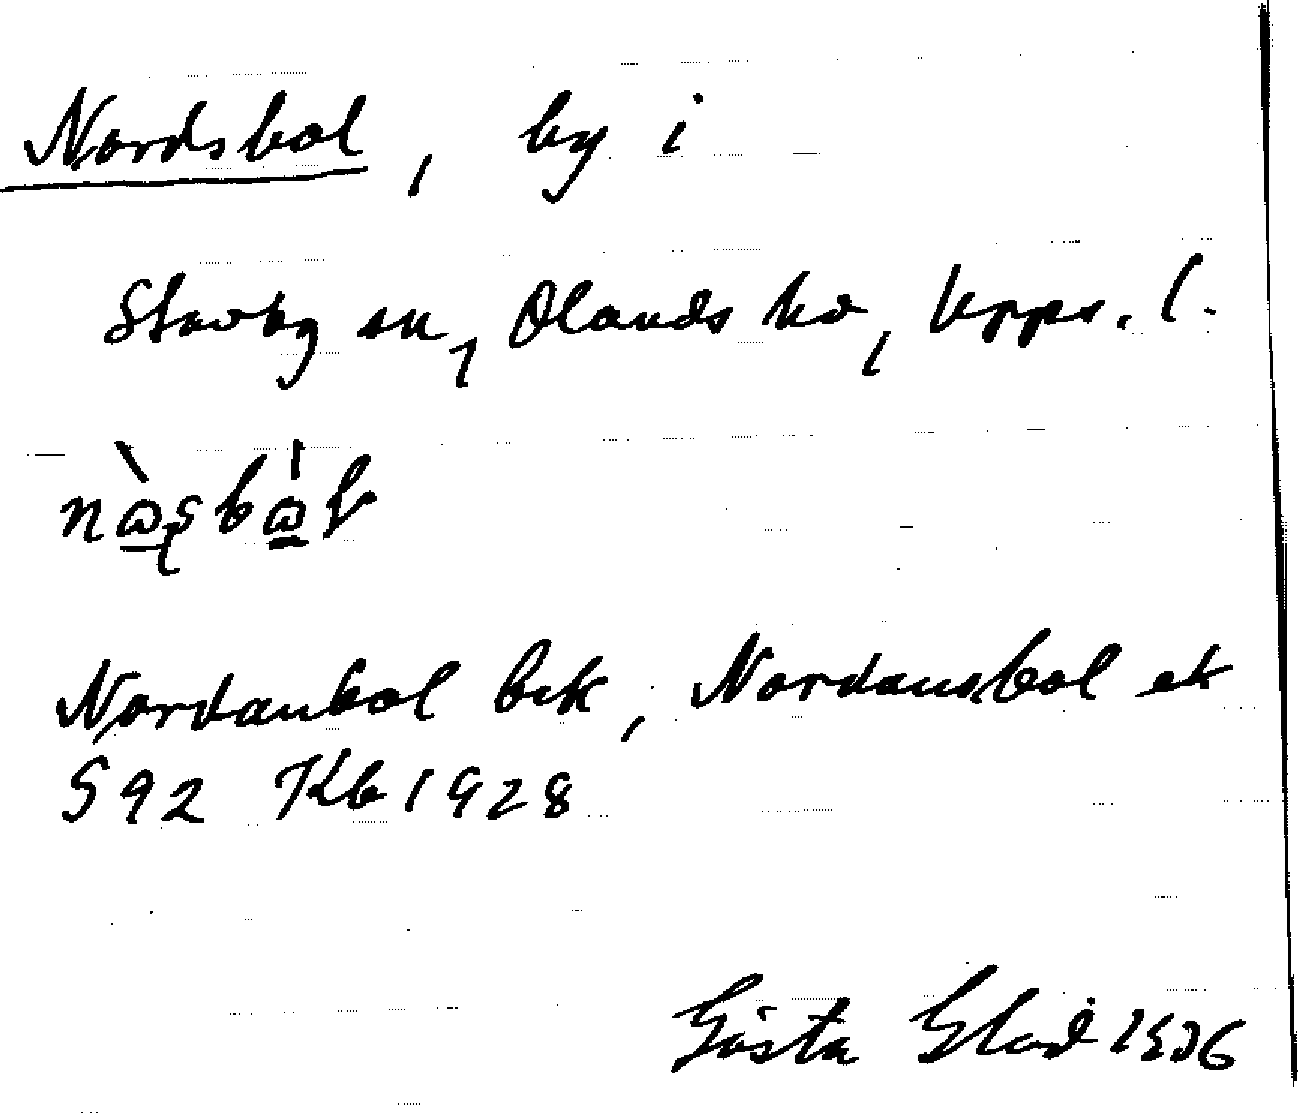 Nordsbol, by i
Stavby sn, Olands hd, Upps. l.
Nordanbol bek, Nordansbol ek
S 92 Kb 1928
Gösta